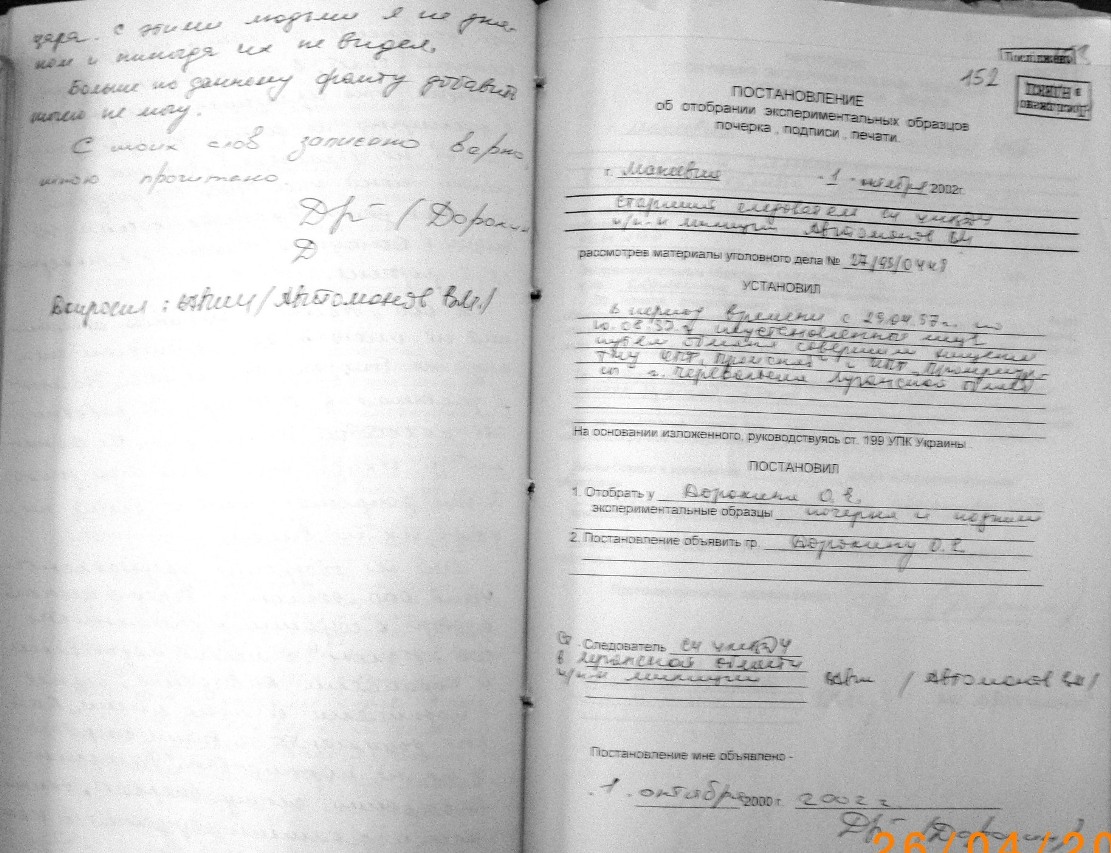 с этими людьми я не зна-
ком и никогда их не видел.
Больше по данному факту добавить
ничего не могу.
С моих слов записано верно,
мною прочитано
Др / Дорохин
Д
Допросил : / Автомонов В.М./
152
ПОСТАНОВЛЕНИЕ
об отобрании экспериментальных образцов
почерка , подписи , печати.
г. Макеевка "1" 2002г.
Старший следователь СУ
м-р милиции Автомонов ВМ
рассмотрев материалы уголовного дела № 27/98/0448
УСТАНОВИЛ
В период времени с 29.04.97г. по
10.06.97г неустановленные лица
путем обмана совершили хищение
г. Первомайска Луганской области
На основании изложенного, руководствуясь ст. 199 УПК Украины .
ПОСТАНОВИЛ
1. Отобрать у Дорохина О.
экспериментальные образцы почерка и подписи
2. Постановление объявить гр. Дорохину О.
Ст. Следователь СУ
в Луганской области
милиции / Автомонов ВМ/
Постановление мне объявлено -
"1" октября 2000 г. 2002 г.
Др / Дорохин /
26/04/20